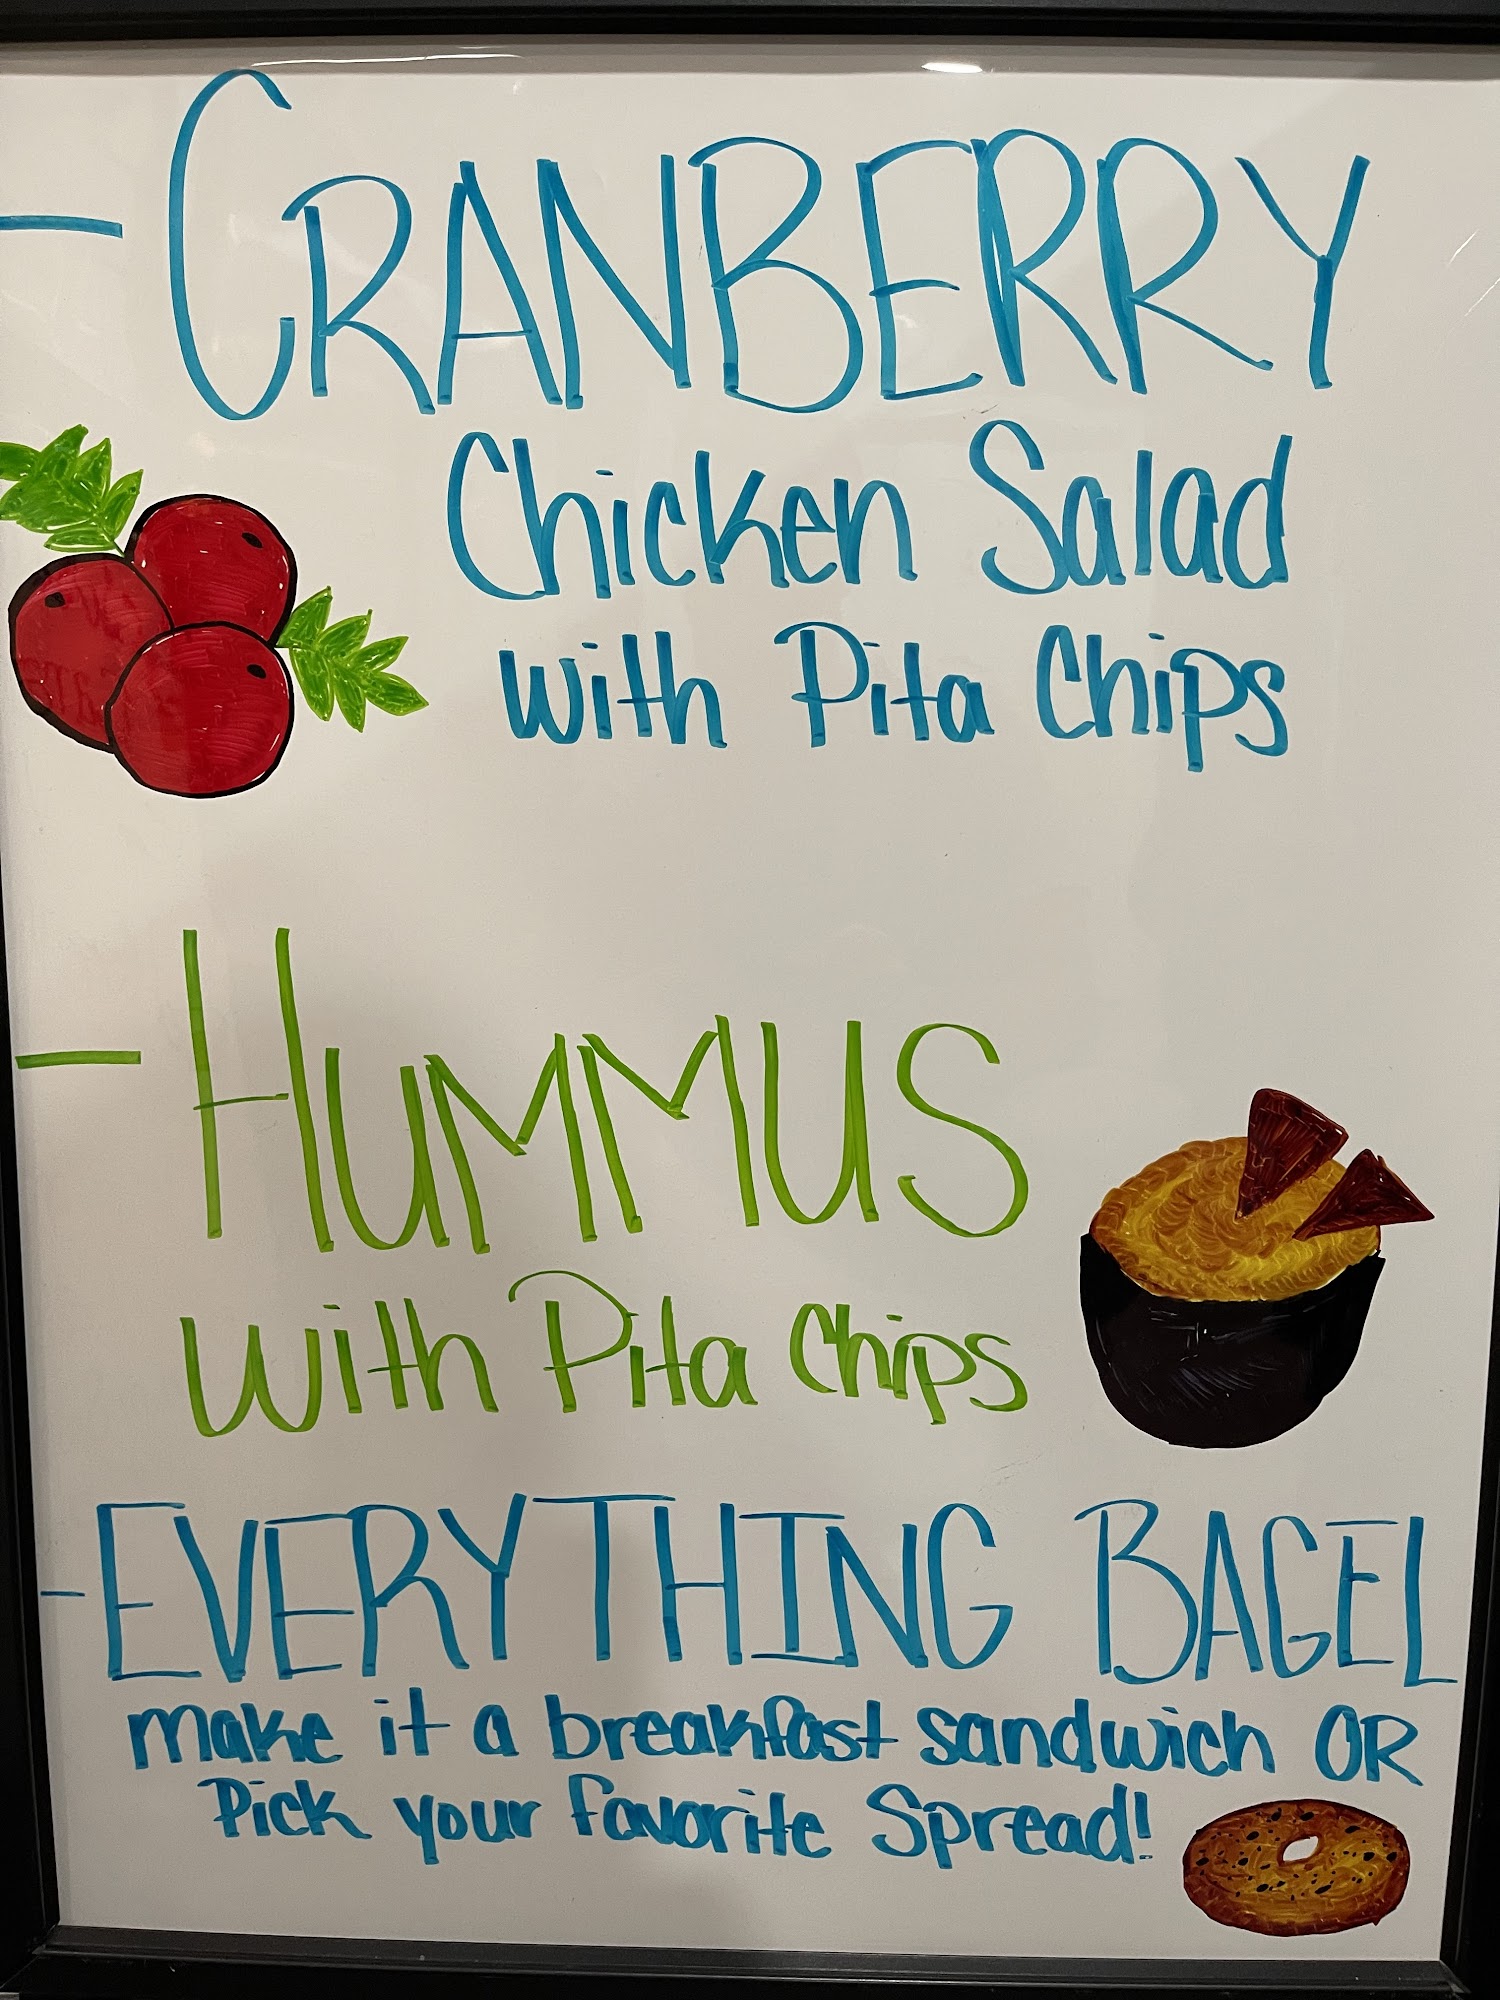 - CRANBERRY
Chicken Salad
with Pita Chips
- HUMMUS
with Pita Chips
- EVERYTHING BAGEL
make it a breakfast sandwich OR
Pick your favorite Spread!